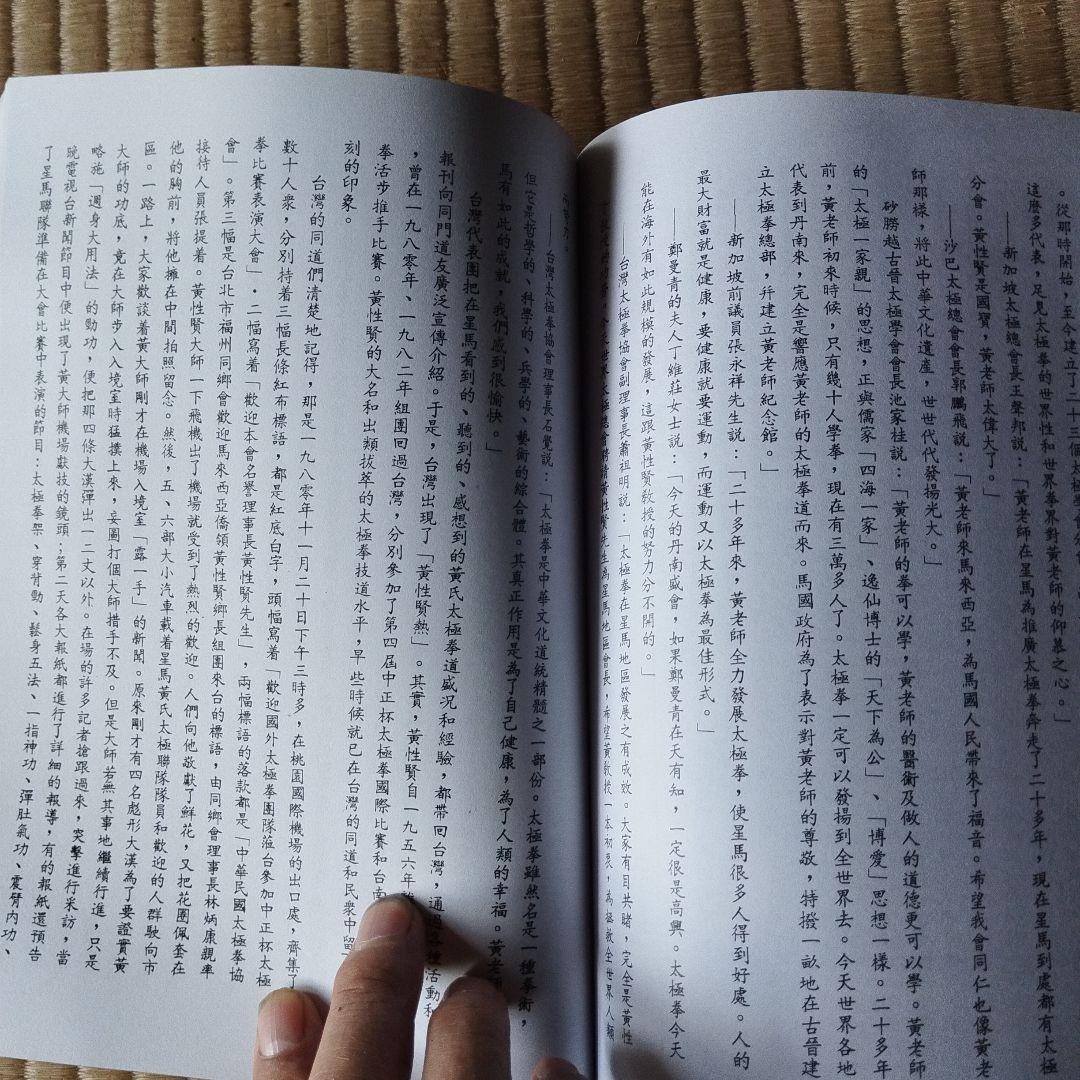 。從那時開始，至今建立了二十三個太極學
這麼多代表，足見太極拳的世界性和世界拳界對黃老師的仰慕之心。
——新加坡太極總會長王聲邦說：「黃老師在星馬為推廣太極拳奔走了二十多年，現在星馬到處都有太極
分會。黃性賢是國寶，黃老師太偉大了。」
——沙巴太極總會會長郭鵬飛說：「黃老師來馬來西亞，為馬國人民帶來了福音。希望我會同仁也像黃老
師那樣，將此中華文化遺產，世世代代發揚光大。」
砂朥越古晉太極學會會長池家桂說：「黃老師的拳可以學，黃老師的醫術及做人的道德更可以學。黃老師
的「太極一家親」的思想，正與儒家「四海一家」、逸仙博士的「天下為公」、「博愛」思想一樣。二十多年
前，黃老師初來時候，只有幾十人學拳，現在有三萬多人了。太極拳一定可以發揚到全世界去。今天世界各地
代表到丹南來，完全是響應黃老師的太極拳道而來。馬國政府為了表示對黃老師的尊敬，特撥一畝地在古晉建
立太極拳總部，幷建立黃老師紀念館。」
——新加坡前議員張永祥先生說：「二十多年來，黃老師全力發展太極拳，使星馬很多人得到好處。人的
最大財富就是健康，要健康就要運動，而運動又以太極拳為最佳形式。」
——鄭曼青的夫人丁維莊女士說：「今天的丹南盛會，如果鄭曼青在天有知，一定很是高興。太極拳今天
能在海外有如此規模的發展，這跟黃性賢教授的努力分不開的。」
——台灣太極拳協會副理事長蕭祖明說：「太極拳在星馬地區發展之有成效。大家有目共睹，完全是黃性
太極總會聘請黃性賢先生為星馬地區會長，希望黃教授一本初衷，為拯救全世界人類
——台灣太極拳協會理事長石覺說：「太極拳是中華文化道統精髓之一部份。太極拳雖然名是一種拳術，
但它是哲學的、科學的、兵學的、藝術的綜合體。其真正作用是為了自己健康，為了人類的幸福。黃老師
馬有如此的成就，我們感到很愉快。」
台灣代表團把在星馬看到的、聽到的、感想到的黃氏太極拳道盛況和經驗，都帶回台灣，通過各種活動和
報刊向同門道友廣泛宣傳介紹。于是，台灣出現了「黃性賢熱」。其實，黃性賢自一九五六年
，曾在一九八〇年、一九八二年組團回過台灣，分別參加了第四屆中正杯太極拳國際比賽和台南
拳活步推手比賽。黃性賢的大名和出類拔萃的太極拳技道水平，早些時候就已在台灣的同道和民衆中留
刻的印象。
台灣的同道們清楚地記得，那是一九八〇年十一月二十日下午三時多，在桃園國際機場的出口處，齊集了
數十人衆，分別持着三幅長條紅布標語，都是紅底白字，頭幅寫着「歡迎國外太極拳團隊蒞台參加中正杯太極
拳比賽表演大會」．二幅寫着「歡迎本會名譽理事長黃性賢先生」，兩幅標語的落款都是「中華民國太極拳協
會」。第三幅是台北市福州同鄉會歡迎馬來西亞僑領黃性賢鄉長組團來台的標語，由同鄉會理事長林炳康親率
接待人員張提着。黃性賢大師一下飛機出了機場就受到了熱烈的歡迎。人們向他敬獻了鮮花，又把花圈佩套在
他的胸前，將他擁在中間拍照留念。然後，五、六部大小汽車載着星馬黃氏太極聯隊隊員和歡迎的人群駛向市
區。一路上，大家歡談着黃大師剛才在機場入境室「露一手」的新聞。原來剛才有四名彪形大漢為了要證實黃
大師的功底，竟在大師步入入境室時猛撲上來，妄圖打個大師措手不及。但是大師若無其事地繼續行進，只是
略施「週身大用法」的勁功，便把那四條大漢彈出一二丈以外。在場的許多記者搶跟過來，突擊進行采訪，當
晚電視台新聞節目中便出現了黃大師機場獻技的鏡頭；第二天各大報紙都進行了詳細的報導，有的報紙還預告
了星馬聯隊準備在大會比賽中表演的節目：太極拳架、穿背勁、鬆身五法、一指神功、彈肚氣功、震臂內功、